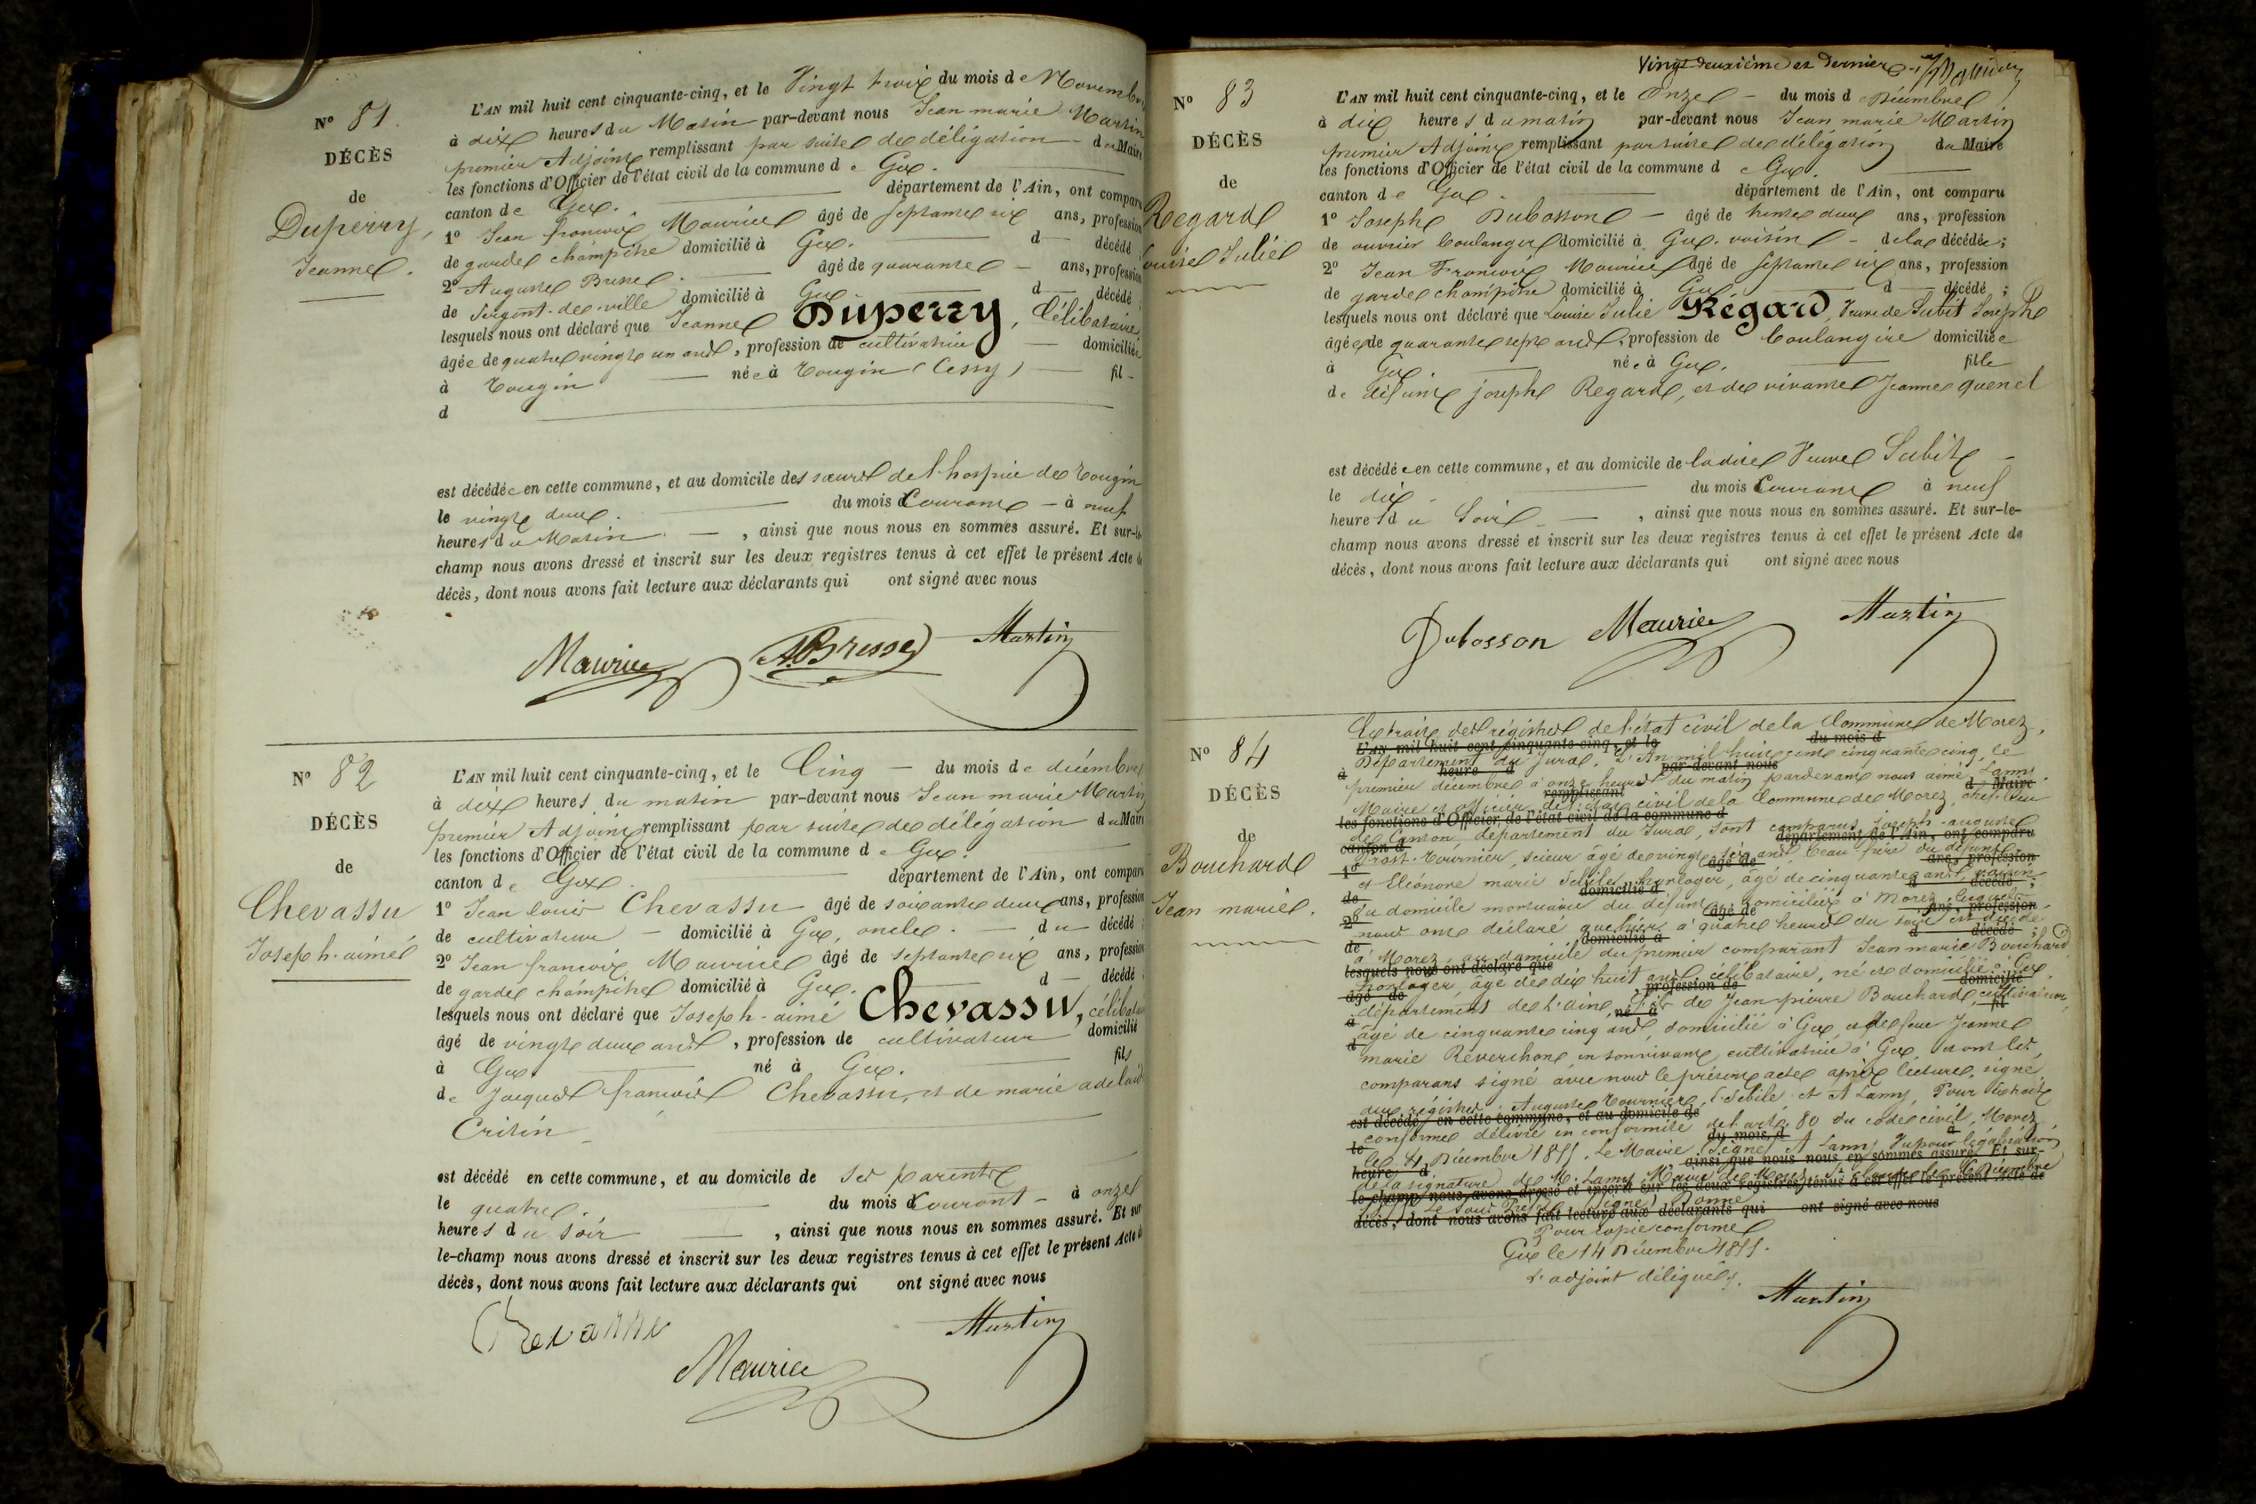 N° 81.
DÉCÈS
de
Duperry,
Jeanne.
L'AN mil huit cent cinquante-cinq, et le Vingt trois du mois de Novembre
à dix heures du Matin par-devant nous Jean marie Martin
premier Adjoint remplissant par suite de délégation du Maire
les fonctions d'Officier de l'état civil de la commune de Gex.
canton de Gex. département de l'Ain, ont comparu
1° Jean françois Maurice âgé de septante six ans, profession
de garde champêtre domicilié à Gex. d décédé
2° Auguste Bresse âgé de quarante ans, profession
de Sergent-de-ville domicilié à Gex d décédé
lesquels nous ont déclaré que Jeanne Duperry, Célibataire
âgée de quatre vingt un ans, profession de cultivatrice domiciliée
à Tougin née à Tougin (Cessy) fil
d
est décédée en cette commune, et au domicile des sœurs de l'hospice de Tougin
le vingt deux. du mois Courant à neuf
heures du Matin, ainsi que nous nous en sommes assuré. Et sur-le-
champ nous avons dressé et inscrit sur les deux registres tenus à cet effet le présent Acte de
décès, dont nous avons fait lecture aux déclarants qui ont signé avec nous
Maurice A. Bresse Martin
N° 82
DÉCÈS
de
Chevassu
Joseph-aimé
L'AN mil huit cent cinquante-cinq, et le Cinq du mois de décembre
à dix heures du matin par-devant nous Jean marie Martin
premier Adjoint remplissant par suite de délégation du Maire
les fonctions d'Officier de l'état civil de la commune de Gex.
canton de Gex. département de l'Ain, ont comparu
1° Jean louis Chevassu âgé de soixante deux ans, profession
de cultivateur domicilié à Gex, oncle du décédé
2° Jean françois Maurice âgé de septante six ans, profession
de garde champêtre domicilié à Gex. d décédé
lesquels nous ont déclaré que Joseph-aimé Chevassu, célibataire
âgé de vingt deux ans, profession de cultivateur domicilié
à Gex. né à Gex. fils
de Jacques françois Chevassu, et de marie adelaïde
Critin
est décédé en cette commune, et au domicile de ses parents
le quatre. du mois Courant à onze
heures du soir, ainsi que nous nous en sommes assuré. Et sur
le-champ nous avons dressé et inscrit sur les deux registres tenus à cet effet le présent Acte de
décès, dont nous avons fait lecture aux déclarants qui ont signé avec nous
Martin
Maurice
Vingt deuxième et dernier
N° 83
DÉCÈS
de
Regard
Louise Julie
L'AN mil huit cent cinquante-cinq, et le Onze du mois d Décembre
à dix heures du matin par-devant nous Jean marie Martin
premier Adjoint remplissant par suite de délégation du Maire
les fonctions d'Officier de l'état civil de la commune de Gex.
canton de Gex. département de l'Ain, ont comparu
1° Joseph Dubosson âgé de trente deux ans, profession
de ouvrier boulanger domicilié à Gex. voisin de la décédée;
2° Jean François Maurice âgé de septante six ans, profession
de garde champêtre domicilié à Gex d décédé;
lesquels nous ont déclaré que Louise Julie Régard, Veuve de Subit Joseph
âgée de quarante sept ans, profession de boulangère domiciliée
à Gex. née à Gex. fille
de défunt joseph Regard, et de vivante Jeanne quenel
est décédée en cette commune, et au domicile de ladite Veuve Subit
le dix du mois Courant à neuf
heures du Soir, ainsi que nous nous en sommes assuré. Et sur-le-
champ nous avons dressé et inscrit sur les deux registres tenus à cet effet le présent Acte de
décès, dont nous avons fait lecture aux déclarants qui ont signé avec nous
Dubosson Maurice Martin
N° 84
DÉCÈS
de
Bouchard
Jean marie.
Extrait des régistres de l'état civil de la Commune de Morez,
L'AN mil huit cent cinquante-cinq, et le du mois d
Département du Jura. L'An mil huit cent cinquante cinq, le
à heure d par-devant nous
premier décembre à onze heures du matin pardevant nous aimé Lamy
remplissant d Maire
Maire et officier de l'état civil de la Commune de Morez, chef-lieu
les fonctions d'Officier de l'état civil de la commune d
de Canton, département du Jura, sont comparus Joseph-auguste
canton d département de l'Ain, ont comparu
Prost-Tournier, scieur âgé de vingt six ans, beau-frère du défunt
1° âgé de ans, profession
et Eléonore marie Sebile horloger, âgé de cinquante ans, voisin
de domicilié à d décédé;
du domicile mortuaire du défunt, domiciliés à Morez, lesquels
2° âgé de ans, profession
nous ont déclaré que hier à quatre heures du soir est décédé
de domicilié à d décédé;
à Morez, au domicile du premier comparant Jean marie Bouchard
lesquels nous ont déclaré que
horloger, âgé de dix huit ans, célibataire, né et domicilié à Gex
âgé de profession de domicilié
département de l'ain, fils de Jean-pierre Bouchard, cultivateur,
à né à fil
âgé de cinquante cinq ans, domicilié à Gex, et de feue Jeanne
d
marie Reverchon, en son vivant cultivatrice à Gex, et ont les
comparans signé avec nous le présent acte après lecture. signé
aux régistres: Auguste Tournier, Sebile et A Lamy. Pour Extrait
est décédé en cette commune, et au domicile de
conforme délivré en conformité de l'art. 80 du code civil, Morez
le du mois d à
le 4 Décembre 1855. Le Maire Signé A Lamy. Vu pour légalisation
heure d ainsi que nous nous en sommes assuré. Et sur-
de la signature de M. Lamy Maire de Morez. St Claude le 6 Décembre
le champ nous avons dressé et inscrit sur les deux registres tenus à cet effet le présent Acte de
1855 Le Sous Préfet Signé Bonne
décès, dont nous avons fait lecture aux déclarants qui ont signé avec nous
Pour copie conforme
Gex le 14 Décembre 1855.
L'adjoint délégué.
Martin